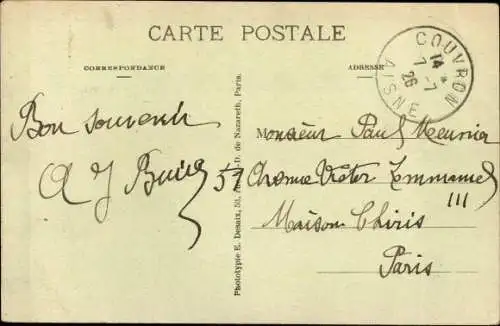 CARTE POSTALE
CORRESPONDANCE
ADRESSE
COUVRON
14
7-7
26
AISNE
Bon souvenir
A J
Phototypie E. Desaix, D. de Nazareth, Paris.
Monsieur Paul Meunier
57 Avenue Victor Emmanuel
III
Maison Chiris
Paris